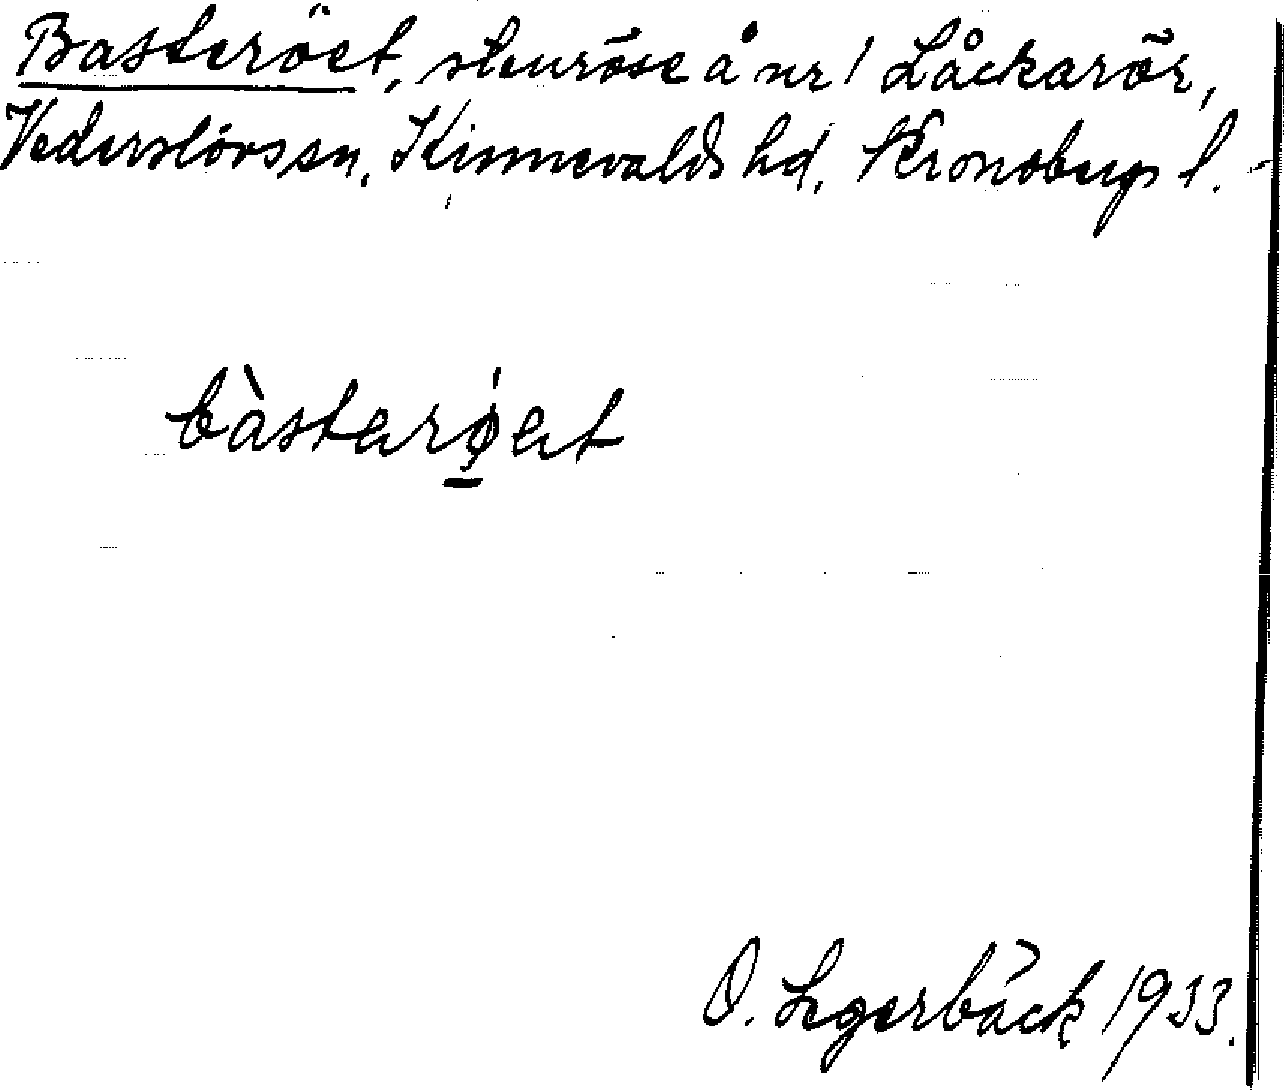 Basteröet, stenröse å nr 1 Låckarör,
Vederslövs sn, Kinnevalds hd, Kronobergs l.
bàsterǿ̱et
O. Legerbäck 1933.